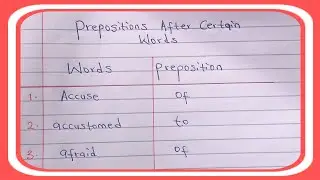 Prepositions After Certain
Words
Words Preposition
1. Accuse of
2. accustomed to
3. afraid of